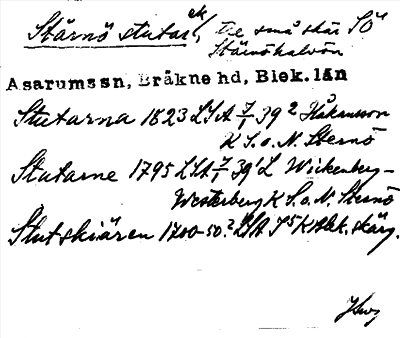 Stärnö stutar, ek/ tre små skär SÖ
Stärnöhalvön
Asarums sn, Bräkne hd, Blek. län
Stutarna 1823 LSA 7/1 39² Håkansson
K S.o.N. Sternö
Stutarne 1795 LSA 7/1 39¹ L Wickenberg-
Westerberg K S.o.N. Sternö
Stutskiären 1700-50? LSA S⁵ K Blek. skärg.